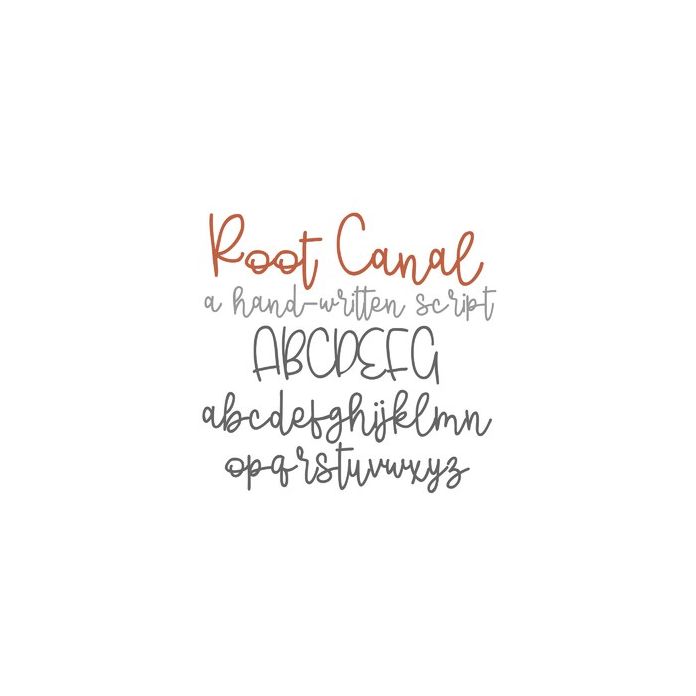 Root Canal
a hand-written script
ABCDEFG
abcdefghijklmn
opqrstuvwxyz